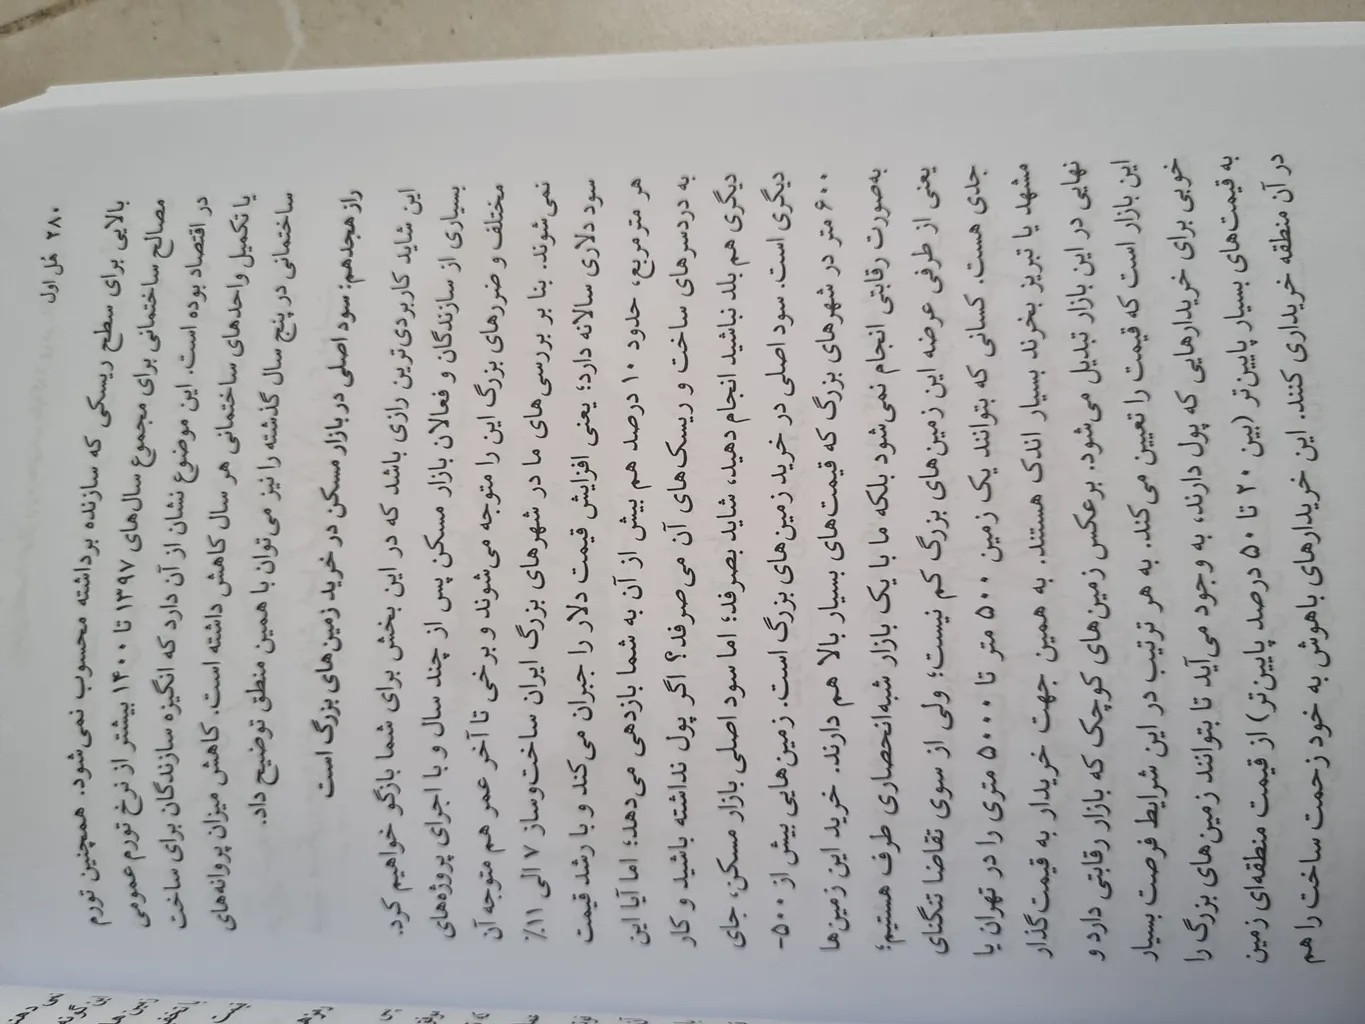 ۲۸۰ مُل اول
بالایی برای سطح ریسکی که سازنده برداشته محسوب نمی‌شود. همچنین تورم
مصالح ساختمانی برای مجموع سال‌های ۱۳۹۷ تا ۱۴۰۰ بیشتر از نرخ تورم عمومی
در اقتصاد بوده است. این موضوع نشان از آن دارد که انگیزه سازندگان برای ساخت
یا تکمیل واحدهای ساختمانی هر سال کاهش داشته است. کاهش میزان پروانه‌های
ساختمانی در پنج سال گذشته را نیز می‌توان با همین منطق توضیح داد.
راز هجدهم: سود اصلی در بازار مسکن در خرید زمین‌های بزرگ است
این شاید کاربردی‌ترین رازی باشد که در این بخش برای شما بازگو خواهیم کرد.
بسیاری از سازندگان و فعالان بازار مسکن پس از چند سال و با اجرای پروژه‌های
مختلف و ضررهای بزرگ این را متوجه می‌شوند و برخی تا آخر عمر هم متوجه آن
نمی‌شوند. بنا بر بررسی‌های ما در شهرهای بزرگ ایران ساخت‌وساز ۷ الی ۱۱٪
سود دلاری سالانه دارد؛ یعنی افزایش قیمت دلار را جبران می‌کند و با رشد قیمت
هر متر مربع، حدود ۱۰ درصد هم بیش از آن به شما بازدهی می‌دهد؛ اما آیا این
به دردسرهای ساخت و ریسک‌های آن می‌صرفد؟ اگر پول نداشته باشید و کار
دیگری هم بلد نباشید انجام دهید، شاید بصرفد؛ اما سود اصلی بازار مسکن، جای
دیگری است. سود اصلی در خرید زمین‌های بزرگ است. زمین‌هایی بیش از ۵۰۰-
۶۰۰ متر در شهرهای بزرگ که قیمت‌های بسیار بالا هم دارند. خرید این زمین‌ها
به‌صورت رقابتی انجام نمی‌شود بلکه ما با یک بازار شبه‌انحصاری طرف هستیم؛
یعنی از طرفی عرضه این زمین‌های بزرگ کم نیست؛ ولی از سوی تقاضا تنگنای
جدی هست. کسانی که بتوانند یک زمین ۵۰۰ متر تا ۵۰۰۰ متری را در تهران یا
مشهد یا تبریز بخرند بسیار اندک هستند. به همین جهت خریدار به قیمت‌گذار
نهایی در این بازار تبدیل می‌شود. برعکس زمین‌های کوچک که بازار رقابتی دارد و
این بازار است که قیمت را تعیین می‌کند. به هر ترتیب در این شرایط فرصت بسیار
خوبی برای خریدارهایی که پول دارند، به وجود می‌آید تا بتوانند زمین‌های بزرگ را
به قیمت‌های بسیار پایین‌تر (بین ۲۰ تا ۵۰ درصد پایین‌تر) از قیمت منطقه‌ای زمین
در آن منطقه خریداری کنند. این خریدارهای باهوش به خود زحمت ساخت را هم